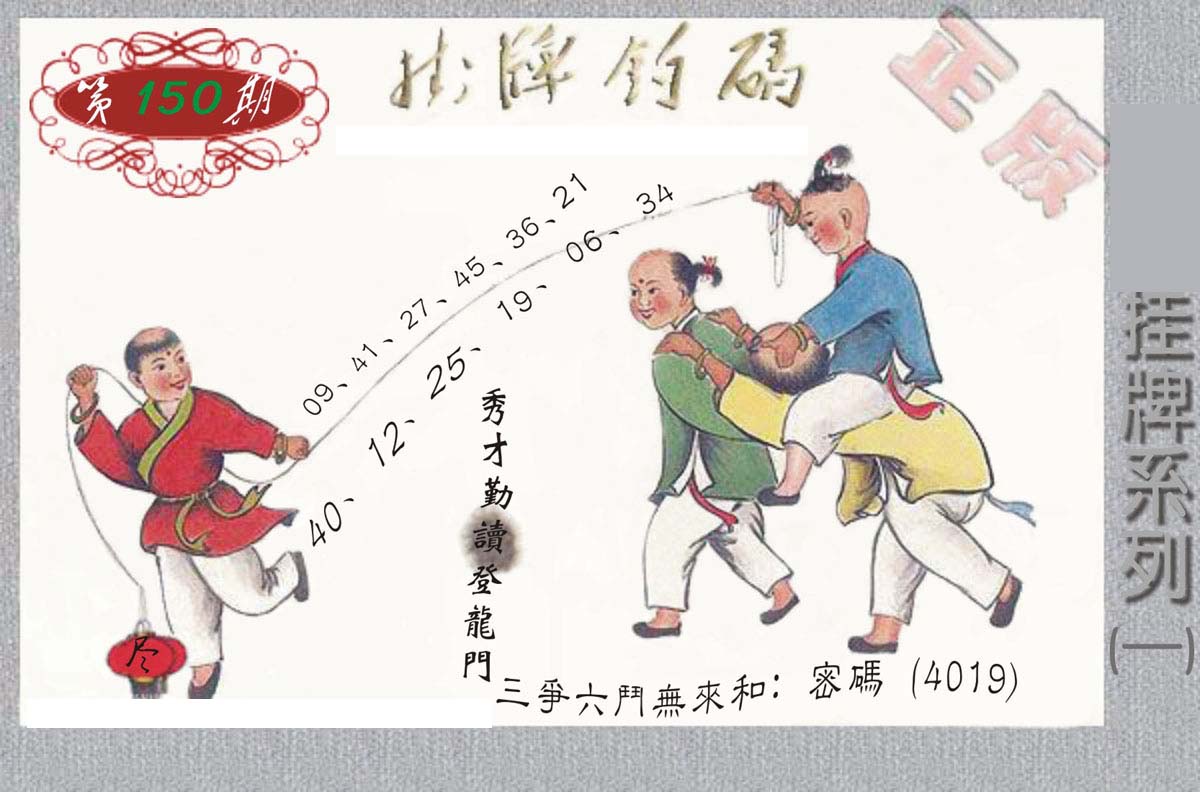 第150期
掛牌釣碼
正版
09、41、27、45、36、21
40、12、25、19、06、34
秀才勤讀登龍門
尽
三爭六鬥無來和：密碼（4019）
挂牌系列（一）